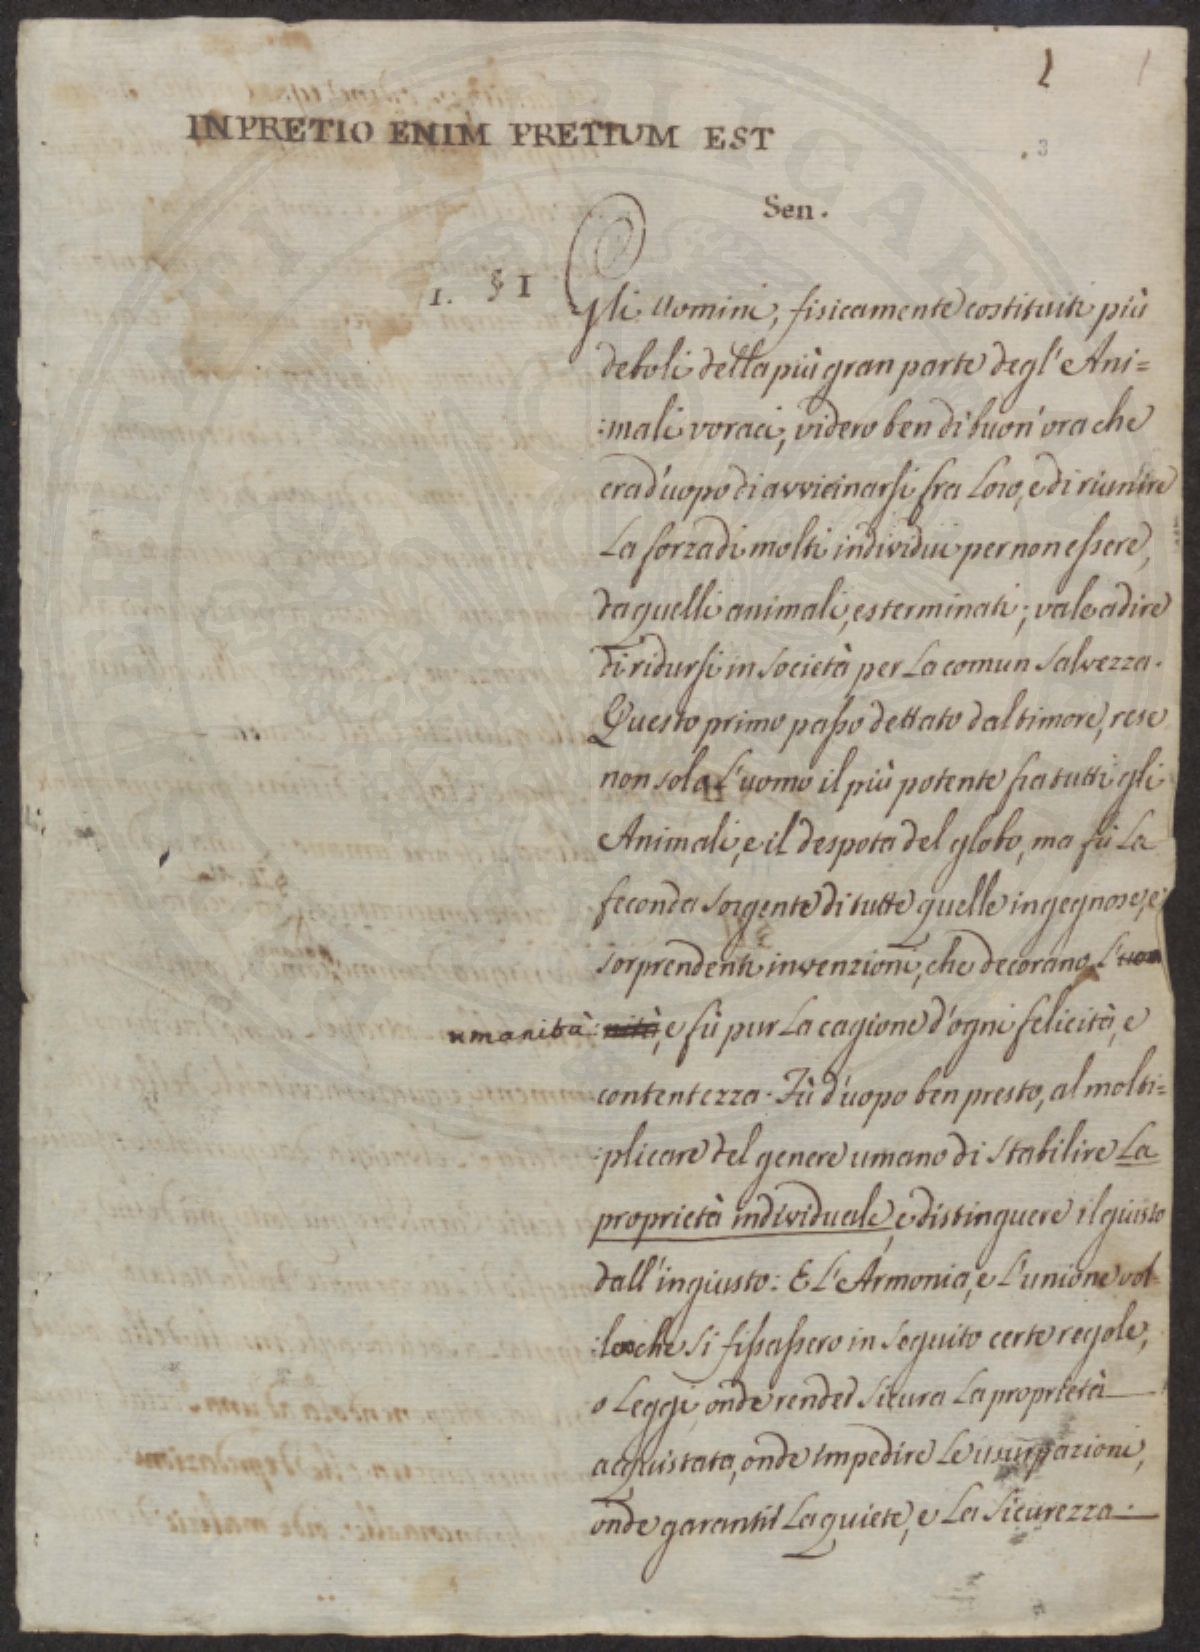 1
3
IN PRETIO ENIM PRETIUM EST
Sen.
1. § 1
Gli Uomini, fisicamente costituiti più
deboli della più gran parte degl' Ani=
:mali voraci, videro ben di buon' ora che
era d'uopo di avvicinarsi fra Loro, e di riunire
La forza di molti individui per non essere,
da quelli animali, esterminati; vale a dire
di ridursi in Società per La comun Salvezza.
Questo primo passo dettato dal timore, rese
non solo L'uomo il più potente fra tutti gli
Animali, e il despota del globo, ma fù La
feconda Sorgente di tutte quelle ingegnose, e
sorprendenti invenzioni, che decorano L'uma
umanità :nità, e fù pur La cagione d'ogni felicità, e
contentezza. Fù d'uopo ben presto, al molti=
:plicare del genere umano di Stabilire La
proprietà individuale, e distinguere il giusto
dall' ingiusto: E L'Armonia, e L'unione vol=
:lo che Si fissassero in Seguito certe regole,
o Leggi, onde render Sicura La proprietà
aquistata, onde impedire Le usurpazioni,
onde garantir La quiete, e La Sicurezza.